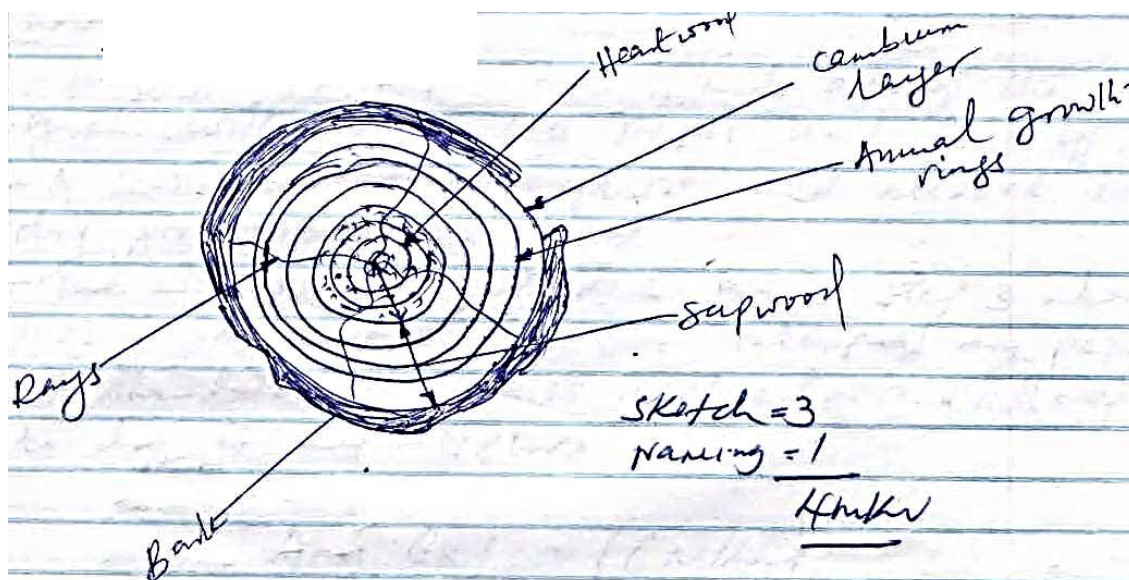 Heartwood
Cambium
layer
Annual growth
rings
Sapwood
Rays
Bark
Sketch = 3
Naming = 1
4mks